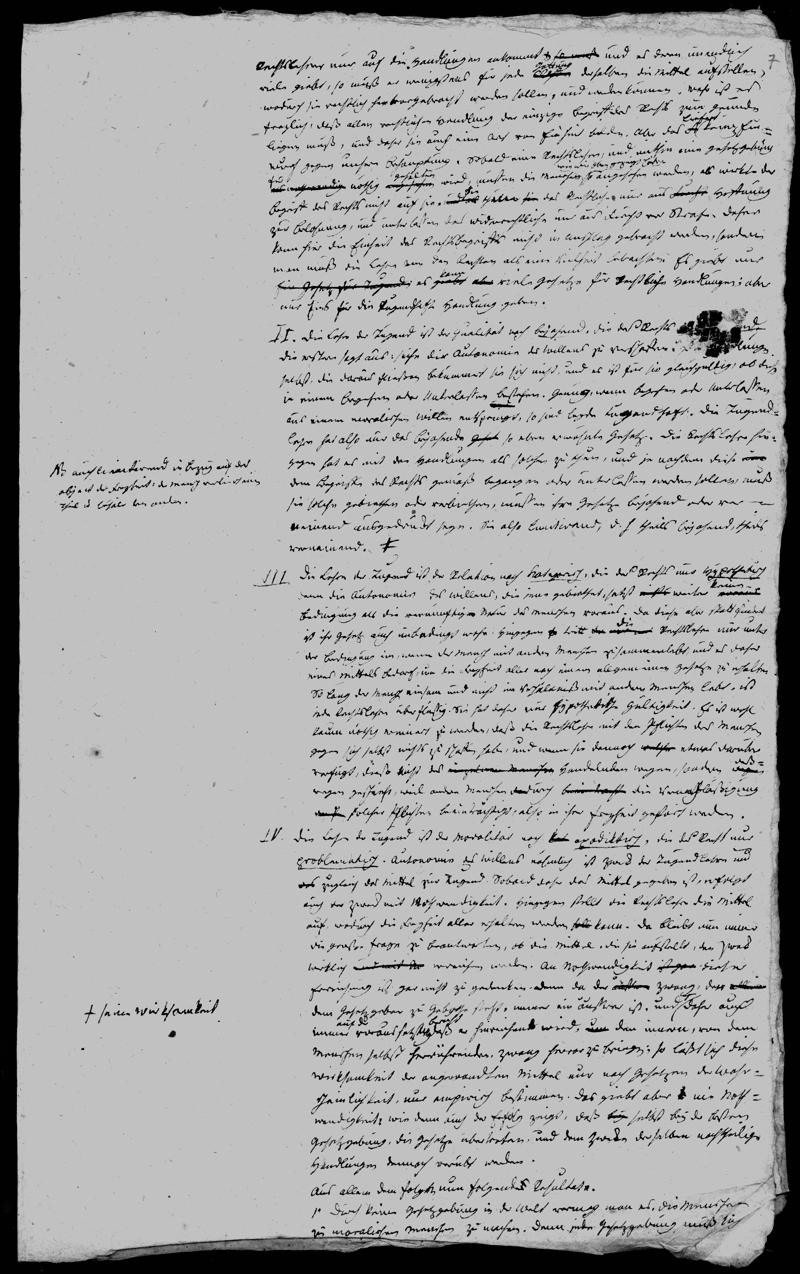 Rechtslehre nur auf die Handlungen ankommt und es deren unendlich
viele giebt, so muß er wenigstens für jede Gattung derselben die Mittel aufstellen,
wodurch sie rechtlich hervorgebracht werden sollen, und werden können. Wahr ist es
freylich, daß allen rechtlichen Handlung der einzige Begriff des Rechts zum Grunde
liegen muß, und daher sie auch eine Art von Einheit bilden. Aber das
nichts gegen unsere Behauptung. Sobald eine Rechtslehre, und mithin eine Gesetzgebung
nöthig wird, müssen die Menschen angesehen werden, als wirkte der
Begriff des Rechts nicht auf sie, das Rechtliche nur aus Hoffnung
zur Belohnung, und unterlassen das widerrechtliche nur aus Furcht vor Strafe. Daher
kann hier die Einheit des Rechtsbegriffs nicht in Anschlag gebracht werden, sondern
man muß die Lehre von den Rechten als eine Vielheit betrachten. Es giebt nur
es viele Gesetze für rechtliche Handlungen: aber
nur Eins für die tugendhafte Handlung geben.
II. Die Lehre der Tugend ist der Qualität nach bejahend, die des Rechts
die erstere sagt aus: suche dir Autonomie des Willens zu verschaffen. Die Handlungen
selbst, die daraus fließen bekümmert sie sich nicht, und es ist für sie gleichgültig, ob die
in einem Begehen oder Unterlassen bestehen. Genug, wenn begehen oder Unterlassen
aus einem moralischen Willen entspringt, so sind beyde tugendhaft. Die Tugend-
lehre hat also nur das bejahende so eben erwähnte Gesetz. Die Rechtslehre hin-
gegen hat es mit den Handlungen als solchen zu thun, und je nachdem diese
dem Begriffe des Rechts gemäß begangen oder unterlassen werden sollen, muß
sie solche gebiethen oder verbiethen, müssen ihre Gesetze bejahend oder ver-
neinend ausgedrückt seyn. Sie also limitirend, d. h. theils bejahend, theils
verneinend. #
N: auch limitirend in Bezug auf das
Object der Freyheit: der Mensch verliert einen
Theil u. behält den andern.
III Die Lehre der Tugend ist der Relation nach kategorisch, die des Rechts nur hypothetisch
denn die Autonomie des Willens, die jene gebiethet, setzt weiter keine
Bedingung als die vernünftige Natur des Menschen voraus. Da diese aber statt findet
ist ihr Gesetz auch unbedingt wahr. Hingegen tritt die Rechtslehre nur unter
der Bedingung ein, wenn der Mensch mit andern Menschen zusammenlebt und es daher
eines Mittels bedarf, um die Freyheit aller nach einem allgemeinen Gesetze zu erhalten.
So lang der Mensch einsam und nicht im Verhältniß mit andern Menschen lebt, ist
jede Rechtslehre überflüssig. Sie hat daher nur hypothetische Gültigkeit. Es ist wohl
kaum nöthig erinnert zu werden, daß die Rechtslehre mit den Pflichten des Menschen
gegen sich selbst nichts zu schaffen habe, und wenn sie dennoch etwas darüber
verfügt, dieß nicht des Handelnden wegen, sondern
wegen geschieht, weil andere Menschen dadurch die Vernachlässigung
solcher Pflichten beeinträchtigt, also in ihrer Freyheit gestört werden.
IV. Die Lehre der Tugend ist der Modalität nach apodiktisch, die des Recht nur
problematisch. Autonomie des Willens nähmlich ist Zweck der Tugendlehre und
zugleich das Mittel zur Tugend. Sobald daher das Mittel gegeben ist, erfolgt
auch der Zweck mit Nothwendigkeit. Hingegen stellt die Rechtslehre die Mittel
auf, wodurch die Freyheit aller erhalten werden kann. Da bleibt nun immer
die große Frage zu beantworten, ob die Mittel, die sie aufstellt, den Zweck
wirklich erreichen werden. An Nothwendigkeit dieser
Erreichung ist gar nicht zu gedenken. denn da der Zwang, der
dem Gesetzgeber zu Gebothe steht, immer ein äußerer ist, und daher auch
immer vorausgesetzt daß er hinreichend wird, den innern, von dem
Menschen selbst herrührenden, Zwang hervorzubringen: so läßt sich diese
Wirksamkeit der angewandten Mittel nur nach Gesetzen der Wahr-
scheinlichkeit, nur empirisch bestimmen. Das giebt aber nie Noth-
wendigkeit; wie denn auch der Erfolg zeigt, daß selbst bey der besten
Gesetzgebung, die Gesetze übertreten, und dem Zwecke derselben nachtheilige
Handlungen dennoch verübt werden.
+ seine Wirksamkeit
Aus allem dem folgen nun folgende Resultate.
1° Durch keine Gesetzgebung in der Welt vermag man es, die Menschen
zu moralischen Menschen zu machen. Denn jede Gesetzgebung muß sich
7